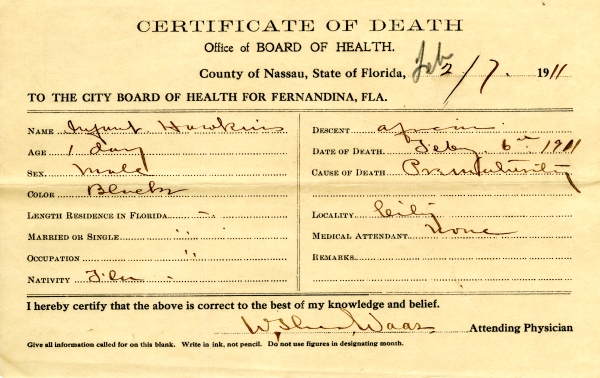 CERTIFICATE OF DEATH
Office of BOARD OF HEALTH.
County of Nassau, State of Florida, Feb 2/7. 1911
TO THE CITY BOARD OF HEALTH FOR FERNANDINA, FLA.
NAME Infant Hawkins
AGE 1 day
SEX Male
COLOR Black
LENGTH RESIDENCE IN FLORIDA "
MARRIED OR SINGLE "
OCCUPATION "
NATIVITY Fla
DESCENT
DATE OF DEATH Feby 6th 1911
CAUSE OF DEATH Prematurity
LOCALITY City
MEDICAL ATTENDANT None
REMARKS
I hereby certify that the above is correct to the best of my knowledge and belief.
Waas Attending Physician
Give all information called for on this blank. Write in ink, not pencil. Do not use figures in designating month.